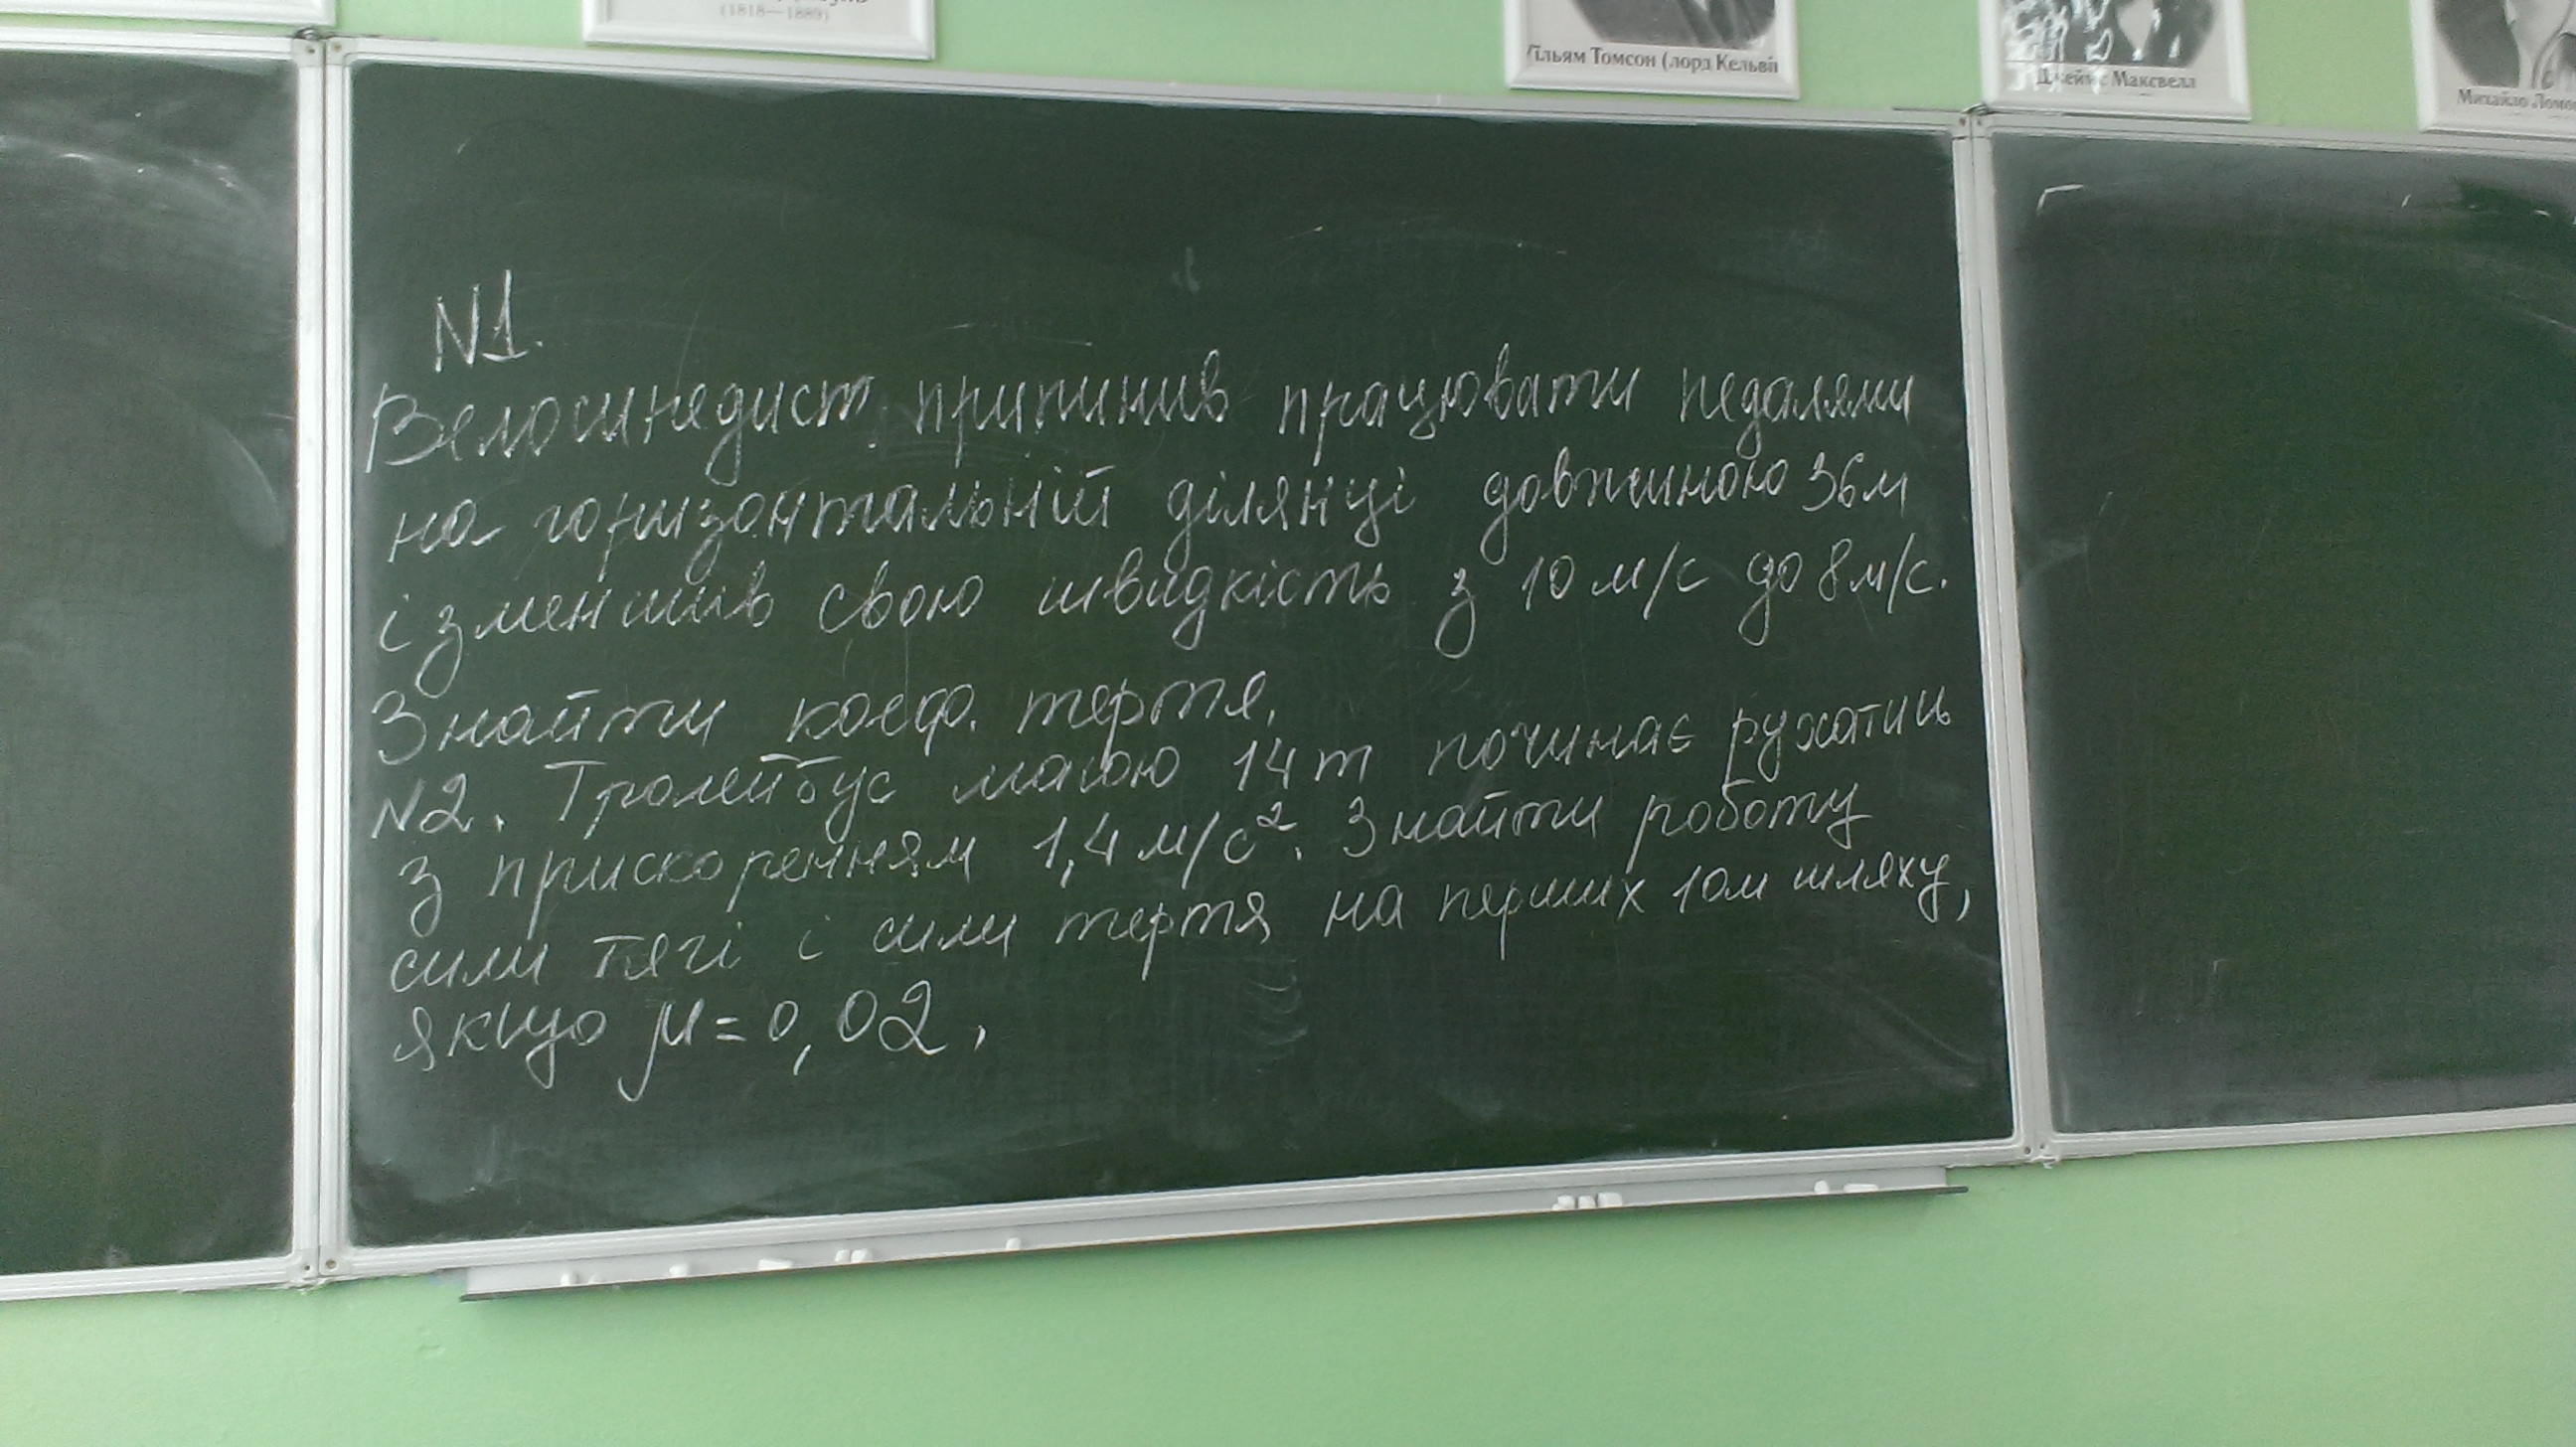 (1818—1889)
ільям Томсон (лорд Кельвін
Джеймс Максвелл
Михайло Ломо
N1.
Велосипедист припинив працювати педалями
на горизонтальній ділянці довжиною 36м
і зменшив свою швидкість з 10 м/с до 8м/с.
Знайти коеф. тертя.
N2. Тролейбус масою 14т починає рухатись
з прискоренням 1,4 м/с². Знайти роботу
сили тягі і сили тертя на перших 10м шляху,
якщо μ=0,02.